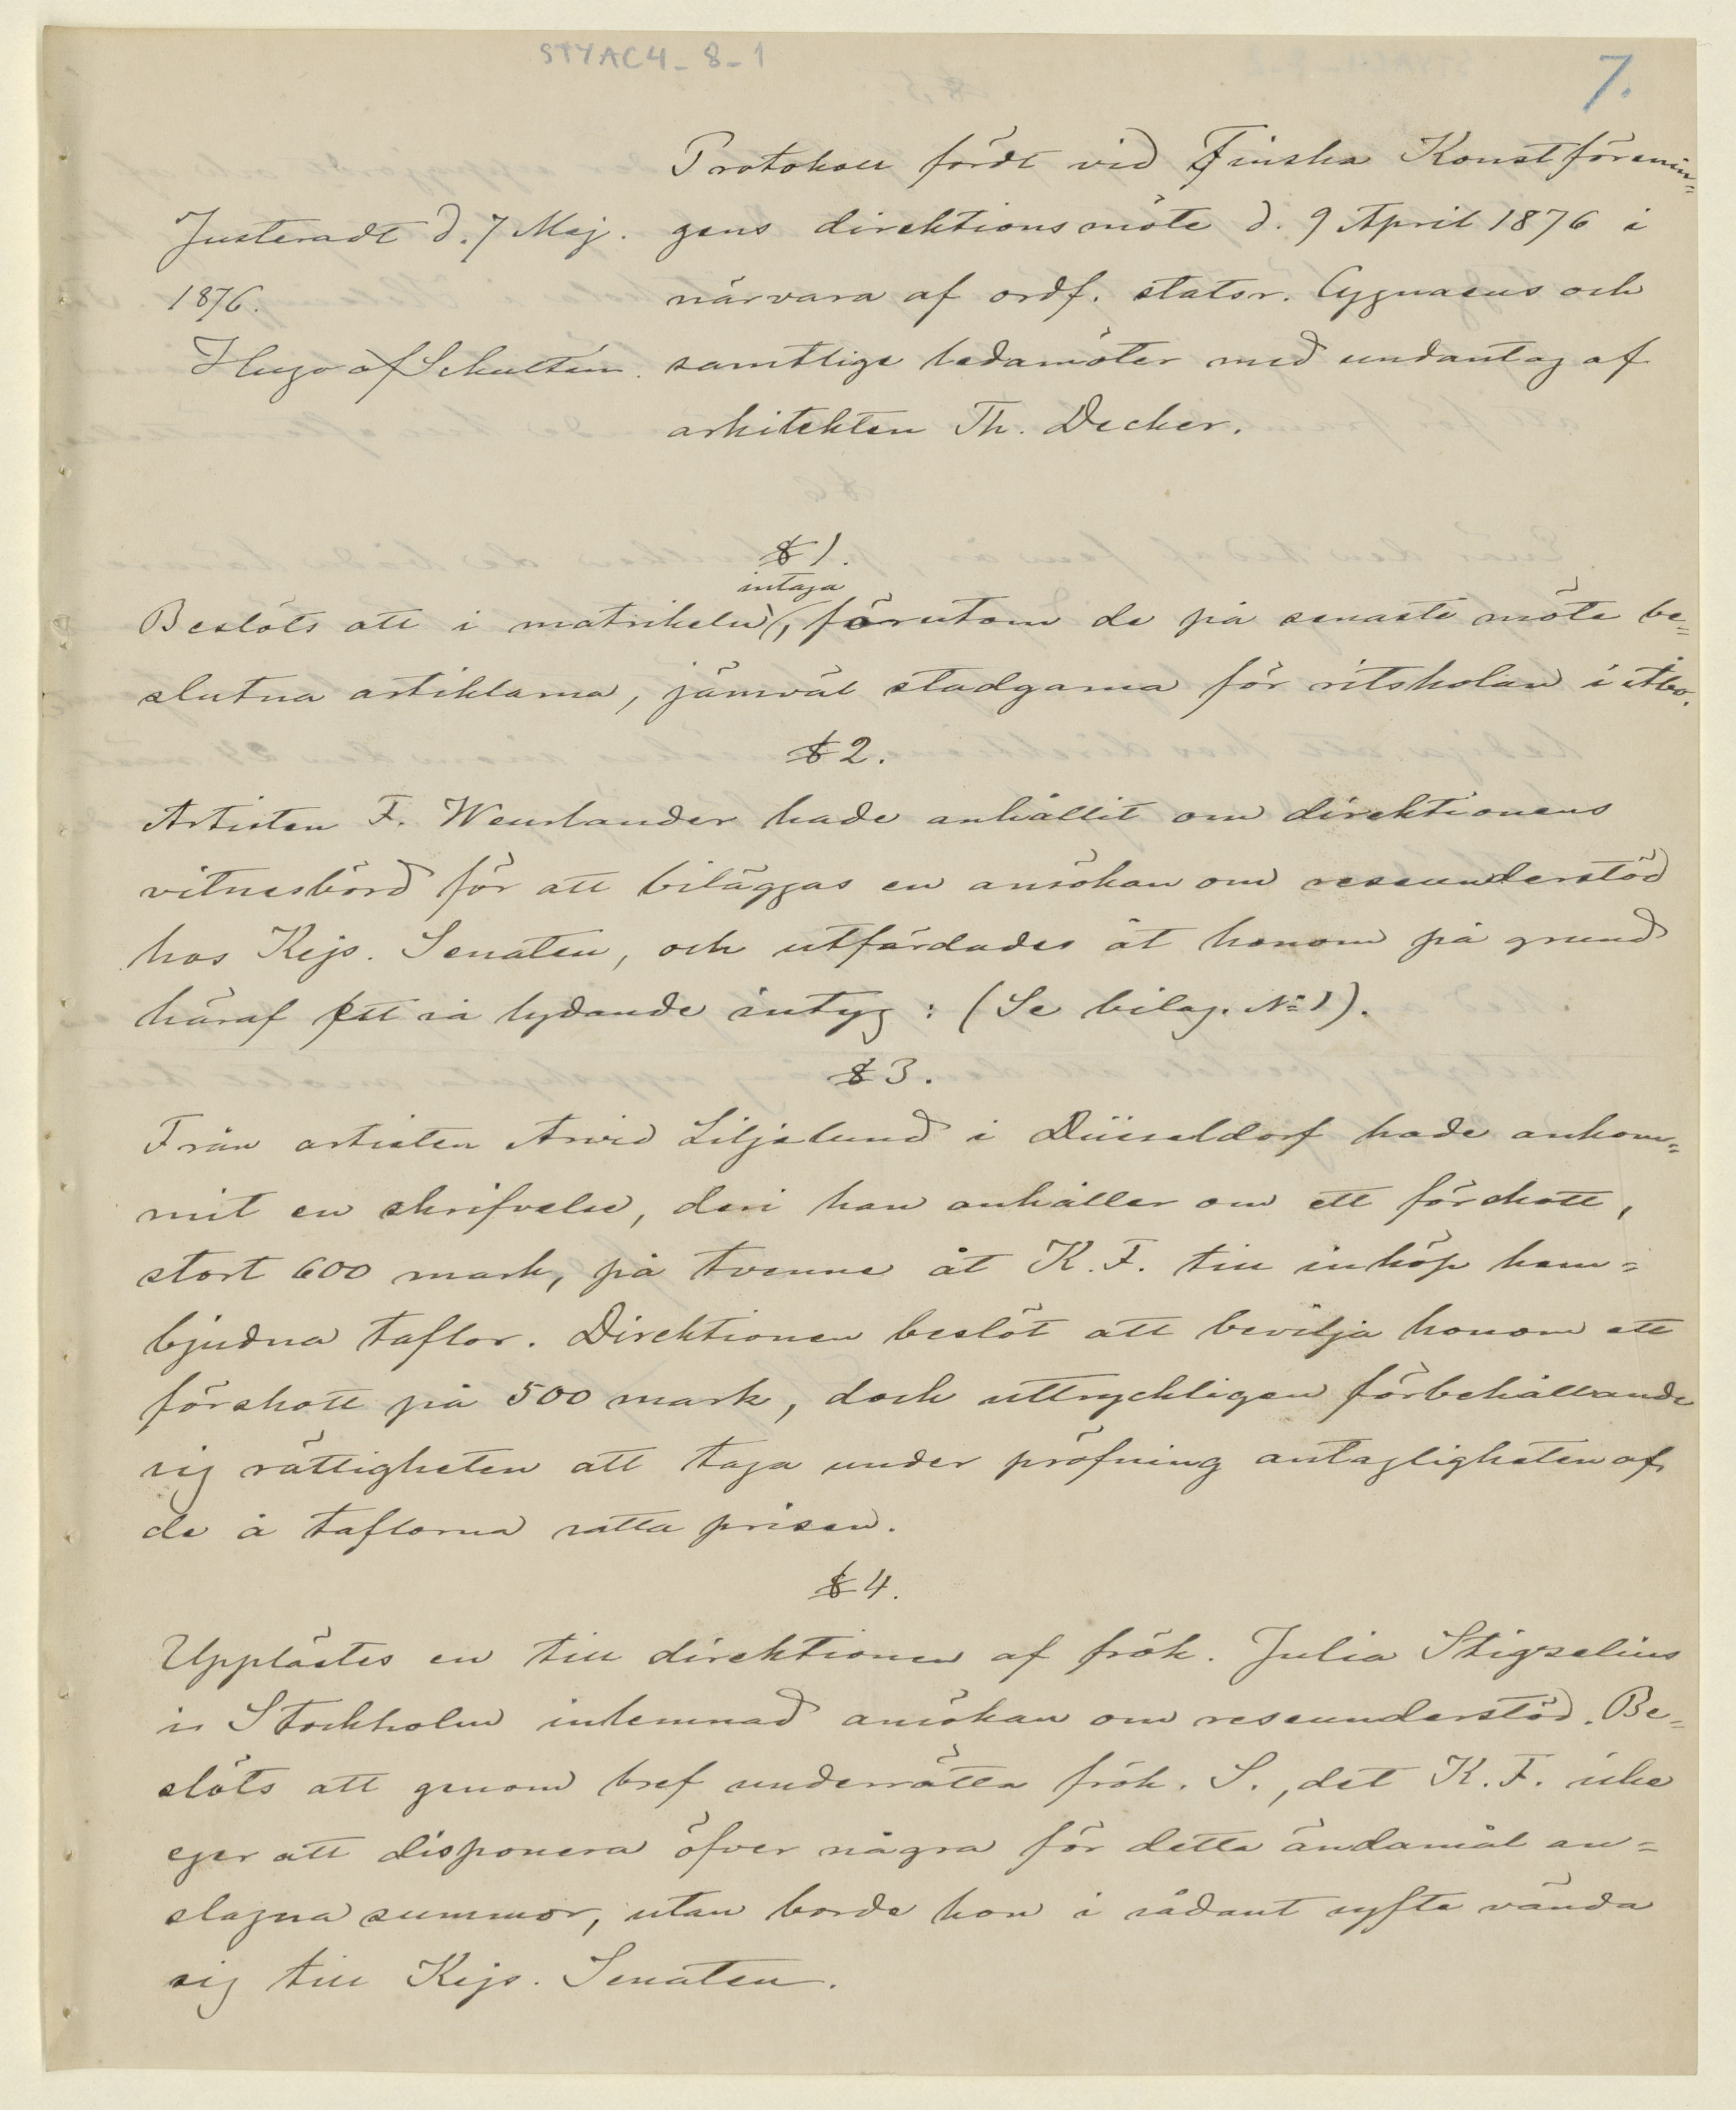 STYAC4_8_1
7.
Protokoll fördt vid Finska Konstförenin=
gens direktionsmöte d. 9 April 1876 i
närvara af ordf. statsr. Cygnaeus och
samtlige ledamöter med undantag af
arkitekten Th. Decker.
Justeradt d. 7 Maj.
1876.
Hugo af Schultén.
§ 1.
intaga
Beslöts att i matrikeln, förutom de på senaste möte be=
slutna artiklarna, jämväl stadgarna för ritskolan i Åbo.
§ 2.
Artisten F. Wenrlander hade anhållit om direktionens
vitnesbörd för att biläggas en ansökan om reseunderstöd
hos Kejs. Senaten, och utfärdades åt honom på grund
häraf ett så lydande intyg : (Se bilag. № 1).
§ 3.
Från artisten Arvid Liljelund i Düsseldorf hade ankom=
mit en skrifvelse, deri han anhåller om ett förskott,
stort 600 mark, på tvenne åt K. F. till inköp hem=
bjudna taflor. Direktionen beslöt att bevilja honom ett
förskott på 500 mark, dock uttryckligen förbehållande
sig rättigheten att taga under pröfning antagligheten af
de å taflorna satta prisen.
§ 4.
Upplästes en till direktionen af frök. Julia Stigzelius
i Stockholm inlemnad ansökan om reseunderstöd. Be=
slöts att genom bref underrätta frök. S., det K. F. icke
eger att disponera öfver några för detta ändamål an=
slagna summor, utan borde hon i sådant syfte vända
sig till Kejs. Senaten.